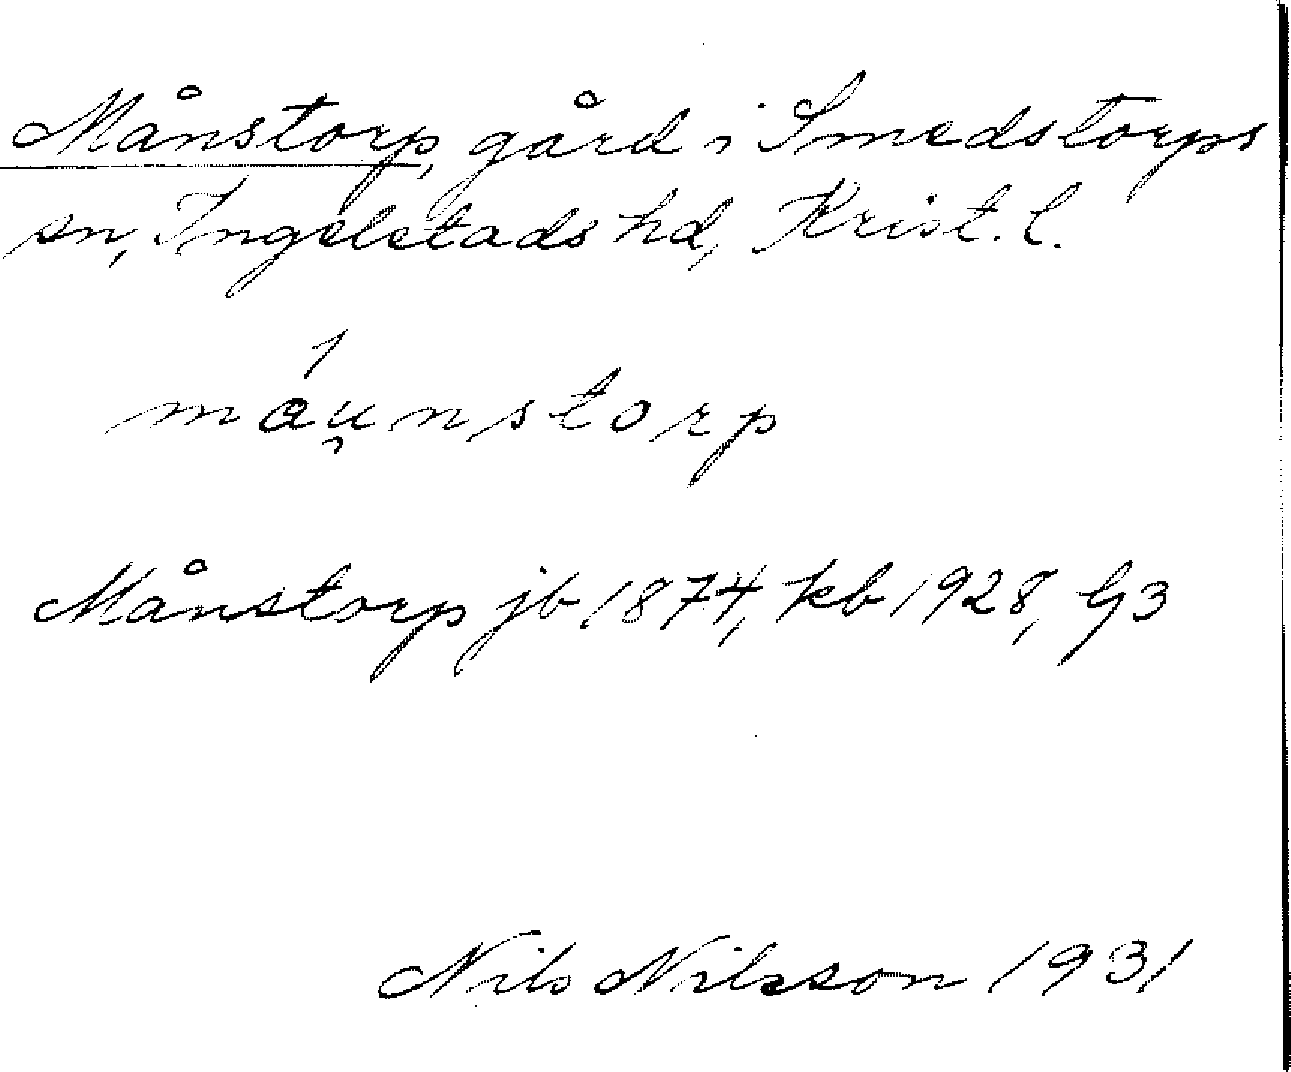 Månstorp, gård i Smedstorps
sn, Ingelstads hd, Krist. l.
1
mau̯nstorp
Månstorp jb 1874, kb 1928, G3
Nils Nilsson 1931